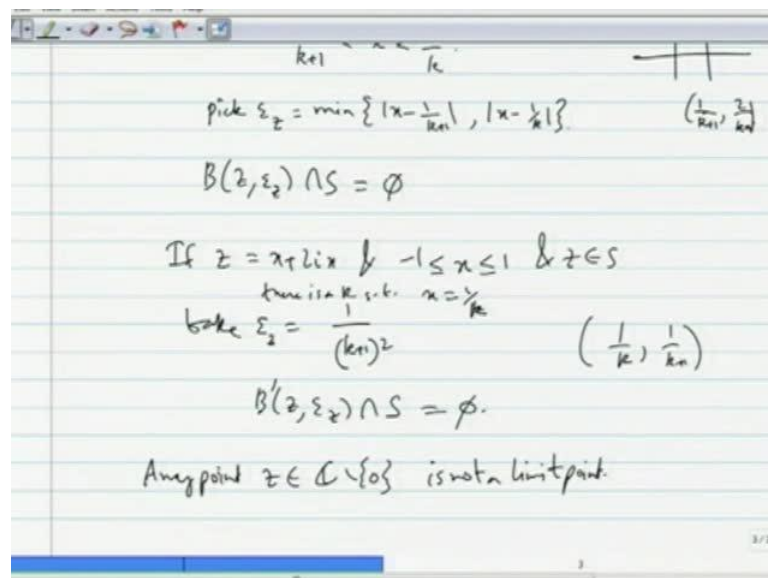 k+1 < x < 1/k.
pick ε_z = min { |x - 1/k+1| , |x - 1/k| }.
B(z, ε_z) ∩ S = φ
If z = x+2ix & -1 ≤ x ≤ 1 & z ∈ S
there is a k s.t. x = 1/k
take ε_z = 1/(k+1)²
B'(z, ε_z) ∩ S = φ.
Any point z ∈ ℂ \ {0} is not a limit point.
3